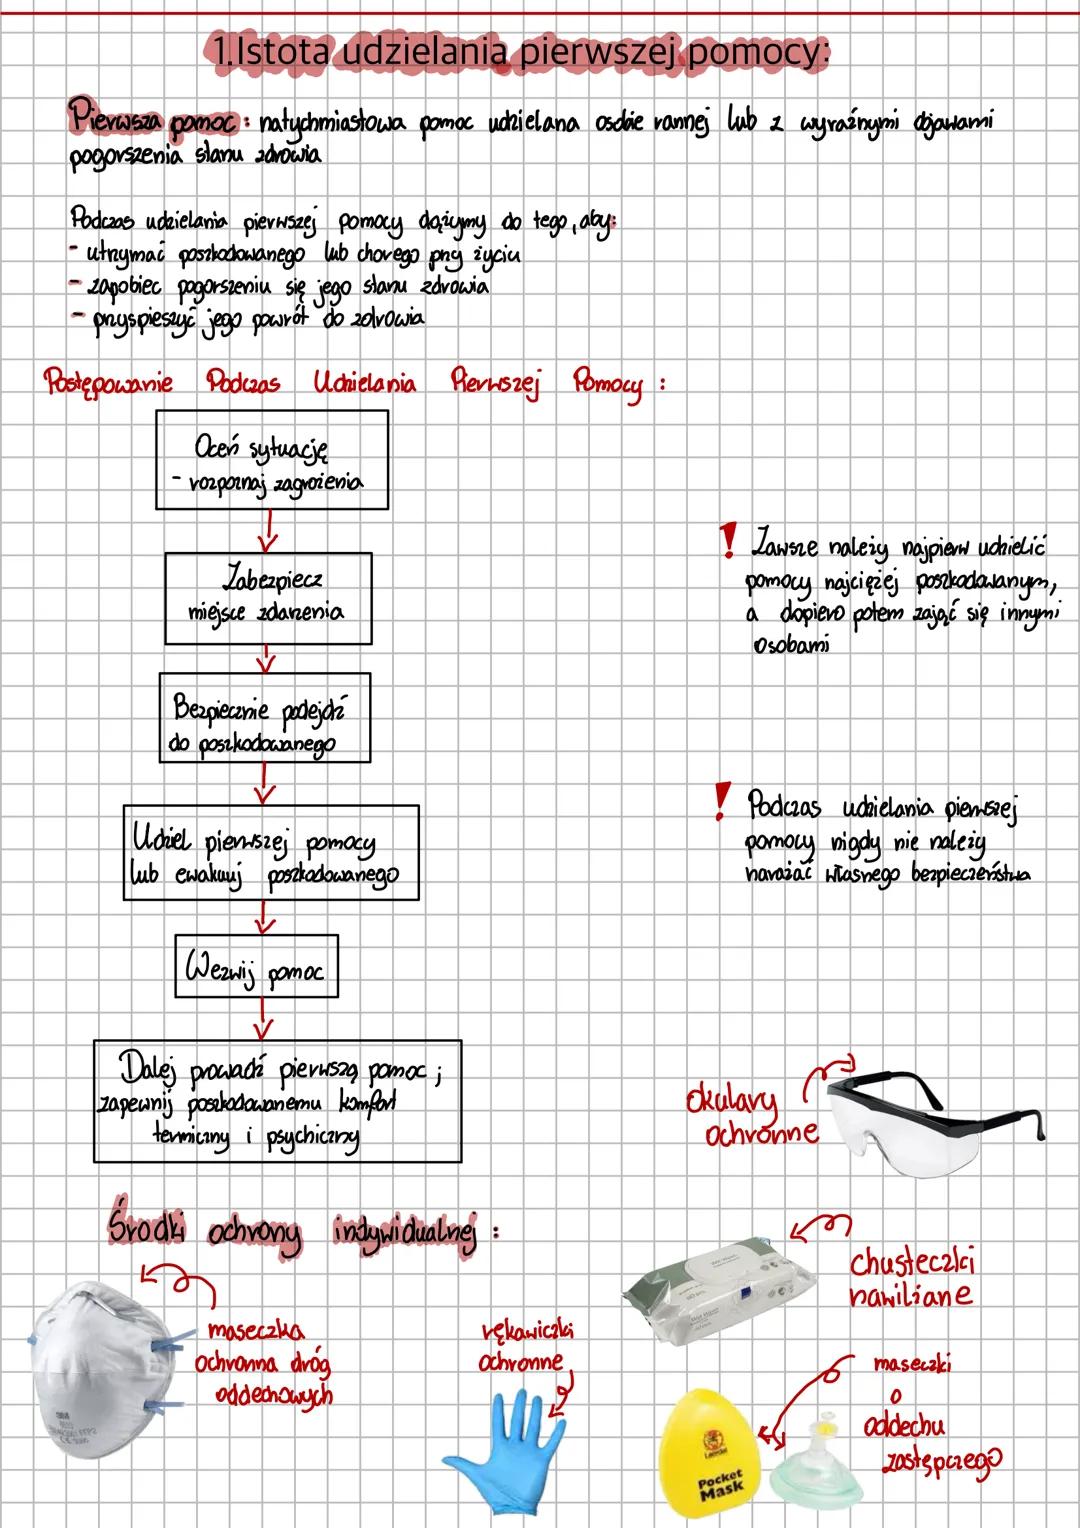 1.Istota udzielania pierwszej pomocy:
Pierwsza pomoc: natychmiastowa pomoc udzielana osobie rannej lub z wyraźnymi objawami
pogorszenia stanu zdrowia
Podczas udzielania pierwszej pomocy dążymy do tego, aby:
- utrzymać poszkodowanego lub chorego przy życiu
- zapobiec pogorszeniu się jego stanu zdrowia
- przyspieszyć jego powrót do zdrowia
Postępowanie Podczas Udzielania Pierwszej Pomocy :
Oceń sytuację
- rozpoznaj zagrożenia
Zabezpiecz
miejsce zdarzenia
Bezpiecznie podejdź
do poszkodowanego
Udziel pierwszej pomocy
lub ewakuuj poszkodowanego
Wezwij pomoc
Dalej prowadź pierwszą pomoc ;
zapewnij poszkodowanemu komfort
termiczny i psychiczny
! Zawsze należy najpierw udzielić
pomocy najciężej poszkodowanym,
a dopiero potem zająć się innymi
osobami
! Podczas udzielania pierwszej
pomocy nigdy nie należy
narażać własnego bezpieczeństwa
Okulary
ochronne
Środki ochrony indywidualnej :
chusteczki
nawilżane
maseczka
ochronna dróg
oddechowych
rękawiczki
ochronne
maseczki
o
oddechu
zastępczego
3M
Laerdal
Pocket
Mask